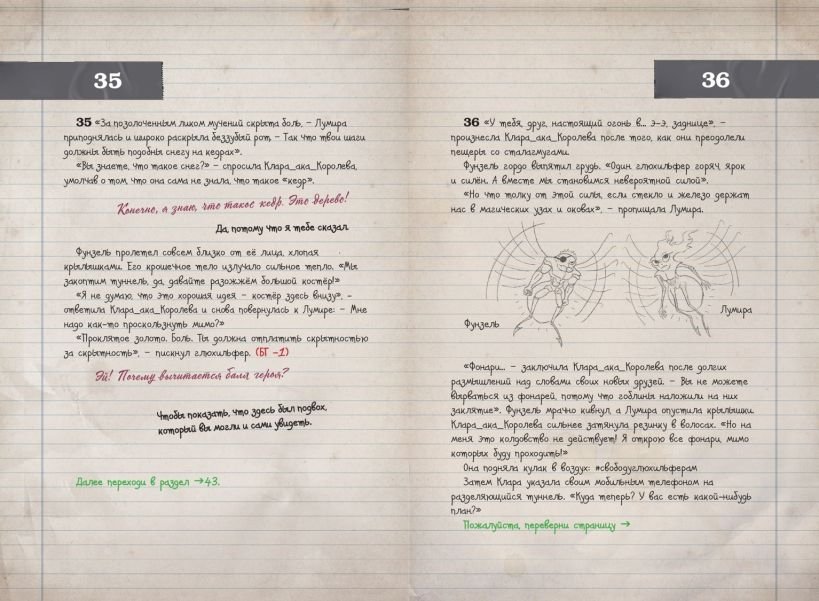 35
35 «За позолоченным ликом мучений скрыта боль, – Лумира
приподнялась и широко раскрыла беззубый рот, – Так что твои шаги
должны быть подобны снегу на кедрах».
«Вы знаете, что такое снег?» – спросила Клара_ака_Королева,
умолчав о том, что она сама не знала, что такое «кедр».
Конечно, я знаю, что такое кедр. Это дерево!
Да, потому что я тебе сказал.
Фунзель пролетел совсем близко от её лица, хлопая
крылышками. Его крошечное тело излучало сильное тепло. «Мы
закоптим туннель, да, давайте разожжём большой костёр!»
«Я не думаю, что это хорошая идея – костёр здесь внизу», –
ответила Клара_ака_Королева и снова повернулась к Лумире: – Мне
надо как-то проскользнуть мимо?»
«Проклятое золото. Боль. Ты должна отплатить скрытностью
за скрытность», – пискнул глюхилфер. (БГ -1)
Эй! Почему вычитается балл героя?
Чтобы показать, что здесь был подвох,
который вы могли и сами увидеть.
Далее переходи в раздел →43.
36
36 «У тебя, друг, настоящий огонь в... э-э, заднице», –
произнесла Клара_ака_Королева после того, как они преодолели
пещеры со сталагмугами.
Фунзель гордо выпятил грудь. «Один глюхилфер горяч, ярок
и силён. А вместе мы становимся невероятной силой».
«Но что толку от этой силы, если стекло и железо держат
нас в магических узах и оковах», – пропищала Лумира.
Фунзель
Лумира
«Фонари... – заключила Клара_ака_Королева после долгих
размышлений над словами своих новых друзей. – Вы не можете
вырваться из фонарей, потому что гоблины наложили на них
заклятие». Фунзель мрачно кивнул, а Лумира опустила крылышки.
Клара_ака_Королева сильнее затянула резинку в волосах. «Но на
меня это колдовство не действует! Я открою все фонари, мимо
которых буду проходить!»
Она подняла кулак в воздух: #свободуглюхилферам
Затем Клара указала своим мобильным телефоном на
разделяющийся туннель. «Куда теперь? У вас есть какой-нибудь
план?»
Пожалуйста, переверни страницу →